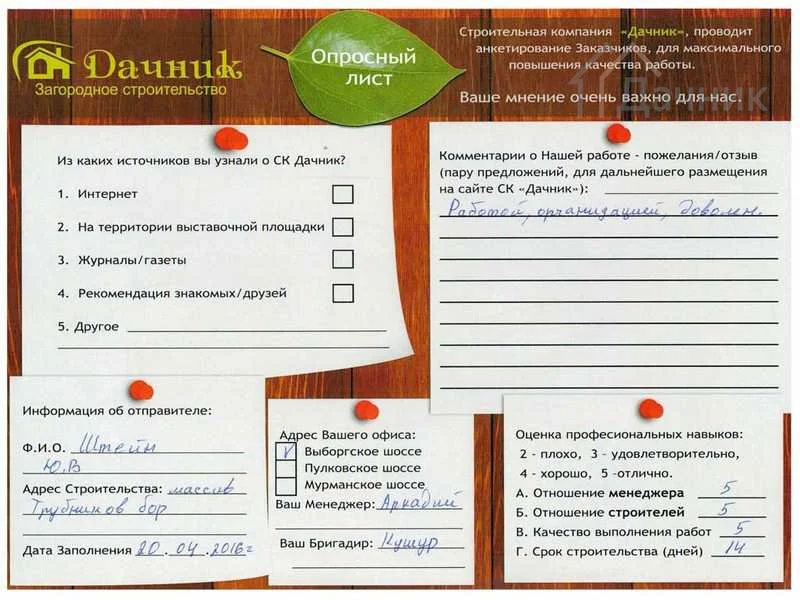 Дачник
Загородное строительство
Опросный
лист
Строительная компания «Дачник», проводит
анкетирование Заказчиков, для максимального
повышения качества работы.
Ваше мнение очень важно для нас.
Дачник
Из каких источников вы узнали о СК Дачник?
1. Интернет
2. На территории выставочной площадки
3. Журналы/газеты
4. Рекомендация знакомых/друзей
5. Другое
Комментарии о Нашей работе - пожелания/отзыв
(пару предложений, для дальнейшего размещения
на сайте СК «Дачник»):
Работой, организацией, доволен.
Информация об отправителе:
Ф.И.О. Штейн
Ю.В
Адрес Строительства: массив
Трубников бор
Дата Заполнения 20.04.2016г
Адрес Вашего офиса:
V Выборгское шоссе
Пулковское шоссе
Мурманское шоссе
Ваш Менеджер: Аркадий
Ваш Бригадир: Кушур
Оценка профессиональных навыков:
2 - плохо, 3 - удовлетворительно,
4 - хорошо, 5 -отлично.
А. Отношение менеджера 5
Б. Отношение строителей 5
В. Качество выполнения работ 5
Г. Срок строительства (дней) 14